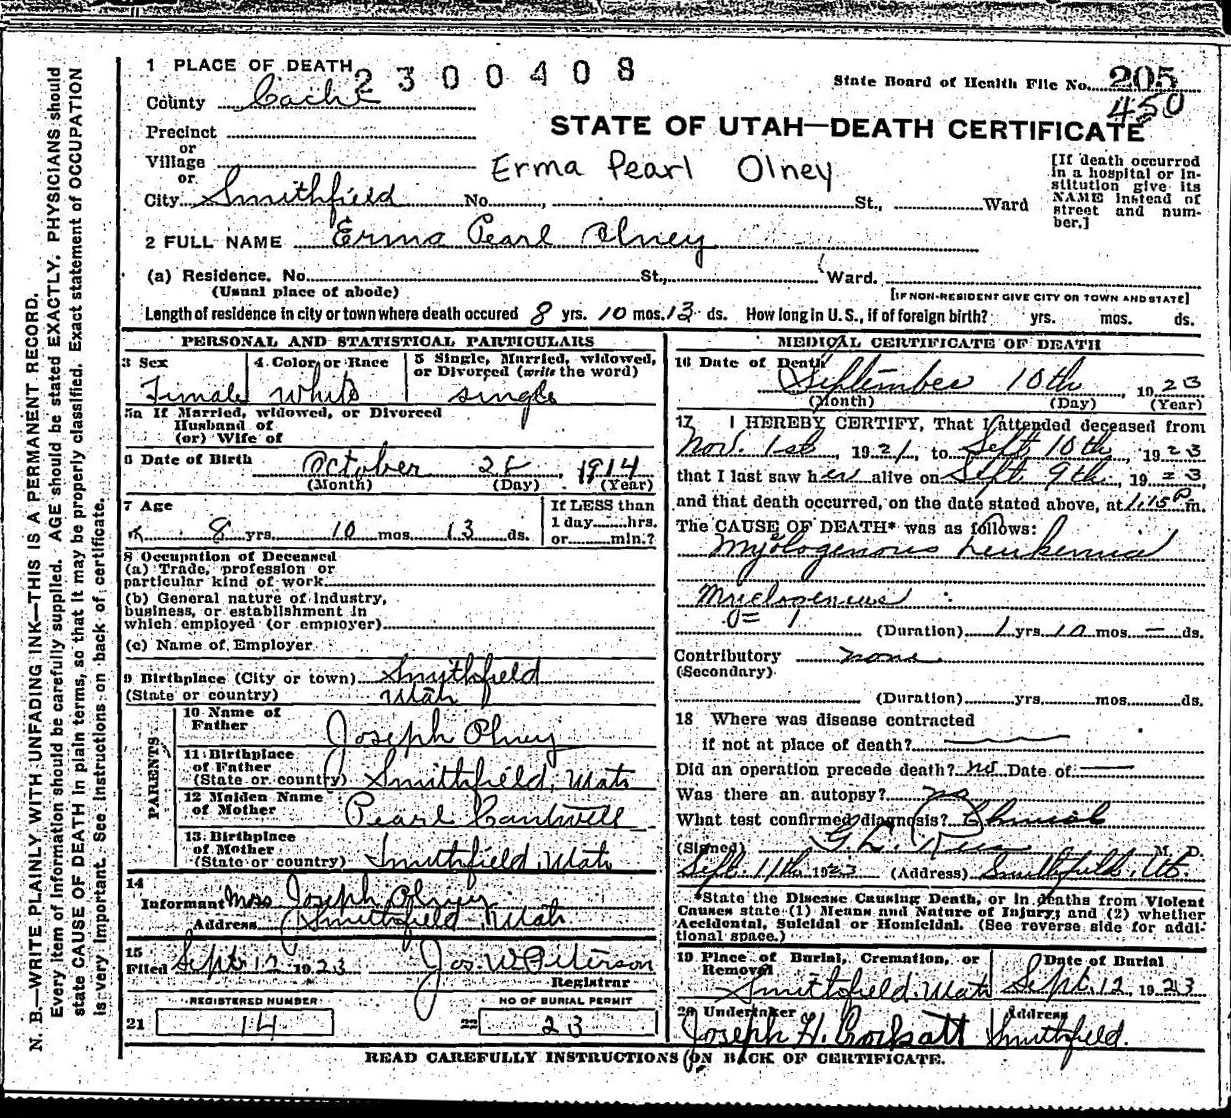 1 PLACE OF DEATH
2300408
State Board of Health File No. 205
450
County Cache
STATE OF UTAH—DEATH CERTIFICATE
Precinct
or
Village
Erma Pearl Olney
or
[If death occurred in a hospital or institution give its NAME instead of street and number.]
City Smithfield No. St., Ward
2 FULL NAME Erma Pearl Olney
(a) Residence. No. St., Ward.
(Usual place of abode)
[IF NON-RESIDENT GIVE CITY OR TOWN AND STATE]
Length of residence in city or town where death occured 8 yrs. 10 mos. 13 ds. How long in U. S., if of foreign birth? yrs. mos. ds.
PERSONAL AND STATISTICAL PARTICULARS
3 Sex
Female
4 Color or Race
White
5 Single, Married, widowed,
or Divorced (write the word)
single
5a If Married, widowed, or Divorced
Husband of
(or) Wife of
6 Date of Birth October 28, 1914
(Month) (Day) (Year)
7 Age
8 yrs. 10 mos. 13 ds.
If LESS than
1 day hrs.
or min.?
8 Occupation of Deceased
(a) Trade, profession or
particular kind of work
(b) General nature of industry,
business, or establishment in
which employed (or employer)
(c) Name of Employer
9 Birthplace (City or town) Smithfield
(State or country) Utah
PARENTS
10 Name of
Father Joseph Olney
11 Birthplace
of Father
(State or country) Smithfield, Utah
12 Maiden Name
of Mother Pearl Cantwell
13 Birthplace
of Mother
(State or country) Smithfield, Utah
14
Informant Mrs Joseph Olney
Address Smithfield, Utah
15
Filed Sept. 12 1923 Jos. W. Peterson
Registrar
REGISTERED NUMBER
21 14
NO OF BURIAL PERMIT
22 23
MEDICAL CERTIFICATE OF DEATH
16 Date of Death
September 10th, 1923
(Month) (Day) (Year)
17 I HEREBY CERTIFY, That I attended deceased from
Nov. 1st, 1921, to Sept. 10th, 1923
that I last saw her alive on Sept. 9th, 1923,
and that death occurred, on the date stated above, at 1:15 P m.
The CAUSE OF DEATH* was as follows:
Myologenous Leukemia
(Duration) 1 yrs 10 mos — ds.
Contributory none
(Secondary)
(Duration) yrs. mos. ds.
18 Where was disease contracted
if not at place of death?
Did an operation precede death? no Date of
Was there an autopsy? no
What test confirmed diagnosis?
(Signed) G. L. Rees M. D.
Sept. 11th 1923 (Address) Smithfield, Ut.
*State the Disease Causing Death, or in deaths from Violent
Causes state (1) Means and Nature of Injury; and (2) whether
Accidental, Suicidal or Homicidal. (See reverse side for addi-
tional space.)
19 Place of Burial, Cremation, or
Removal
Smithfield, Utah
Date of Burial
Sept. 12, 1923
20 Undertaker
Joseph H.
Address
Smithfield.
READ CAREFULLY INSTRUCTIONS ON BACK OF CERTIFICATE.
N. B.—WRITE PLAINLY WITH UNFADING INK—THIS IS A PERMANENT RECORD.
Every item of information should be carefully supplied. AGE should be stated EXACTLY. PHYSICIANS should
state CAUSE OF DEATH in plain terms, so that it may be properly classified. Exact statement of OCCUPATION
is very important. See instructions on back of certificate.